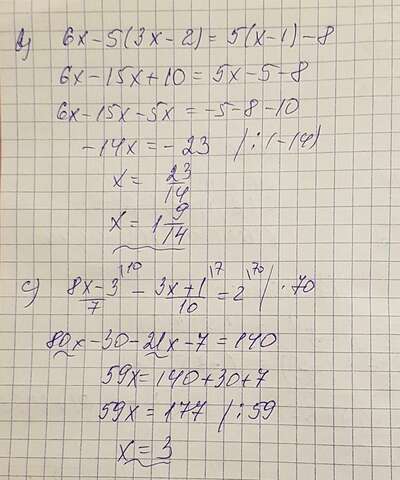 b) 6x-5(3x-2)=5(x-1)-8
6x-15x+10=5x-5-8
6x-15x-5x=-5-8-10
-14x=-23 /:(-14)
x= 23/14
x= 1 9/14
c) 8x-3/7 \10 - 3x+1/10 \7 = 2 \70 / ·70
80x-30-21x-7=140
59x=140+30+7
59x=177 /:59
x=3